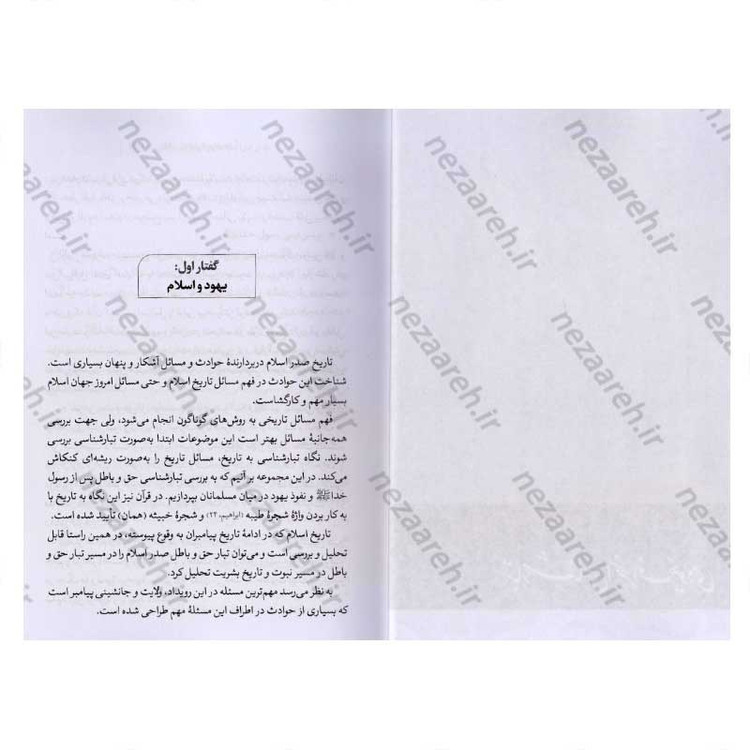 گفتار اول:
یهود و اسلام
تاریخ صدر اسلام دربردارندهٔ حوادث و مسائل آشکار و پنهان بسیاری است.
شناخت این حوادث در فهم مسائل تاریخ اسلام و حتی مسائل امروز جهان اسلام
بسیار مهم و کارگشاست.
فهم مسائل تاریخی به روش‌های گوناگون انجام می‌شود، ولی جهت بررسی
همه‌جانبهٔ مسائل بهتر است این موضوعات ابتدا به‌صورت تبارشناسی بررسی
شوند. نگاه تبارشناسی به تاریخ، مسائل تاریخ را به‌صورت ریشه‌ای کنکاش
می‌کند. در این مجموعه بر آنیم که به بررسی تبارشناسی حق و باطل پس از رسول
خدا ﷺ و نفوذ یهود در میان مسلمانان بپردازیم. در قرآن نیز این نگاه به تاریخ با
به کار بردن واژهٔ شجرهٔ طیبه (ابراهیم، ۲۴) و شجرهٔ خبیثه (همان) تأیید شده است.
تاریخ اسلام که در ادامهٔ تاریخ پیامبران به وقوع پیوسته، در همین راستا قابل
تحلیل و بررسی است و می‌توان تبار حق و باطل صدر اسلام را در مسیر تبار حق و
باطل در مسیر نبوت و تاریخ بشریت تحلیل کرد.
به نظر می‌رسد مهم‌ترین مسئله در این رویداد، ولایت و جانشینی پیامبر است
که بسیاری از حوادث در اطراف این مسئلهٔ مهم طراحی شده است.
nezaareh.ir
nezaareh.ir
nezaareh.ir
nezaareh.ir
nezaareh.ir
nezaareh.ir
nezaareh.ir
nezaareh.ir
nezaareh.ir
nezaareh.ir
nezaareh.ir